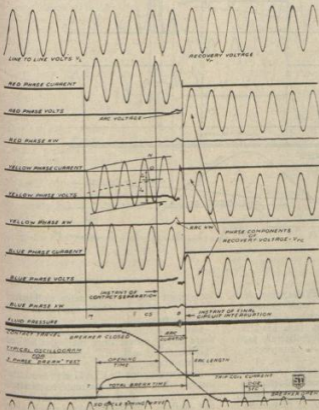 LINE TO LINE VOLTS VL
RECOVERY VOLTAGE
RED PHASE CURRENT
RED PHASE VOLTS
ARC VOLTAGE
RED PHASE KW
YELLOW PHASE CURRENT
YELLOW PHASE VOLTS
YELLOW PHASE KW
ARC KW
PHASE COMPONENTS
OF
RECOVERY VOLTAGE
BLUE PHASE CURRENT
BLUE PHASE VOLTS
INSTANT OF
CONTACT SEPARATION
BLUE PHASE KW
INSTANT OF FINAL
CIRCUIT INTERRUPTION
FLUID PRESSURE
CONTACT TRAVEL
BREAKER CLOSED
ARC
DURATION
TYPICAL OSCILLOGRAM
FOR
3 PHASE "BREAK" TEST
OPENING
TIME
ARC LENGTH
TRIP COIL CURRENT
TOTAL BREAK TIME
BREAKER OPEN